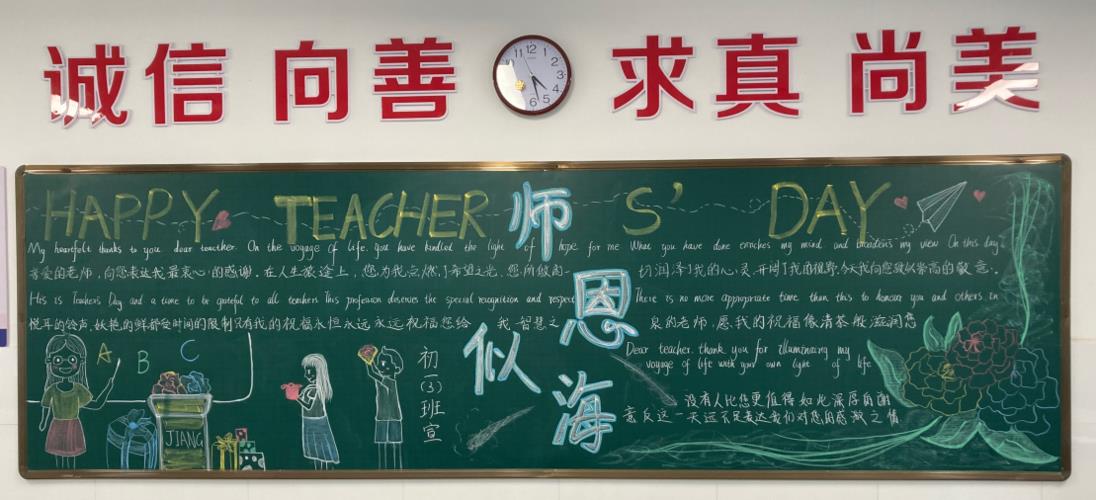 诚信 向善 求真 尚美
HAPPY TEACHER S' DAY
师恩似海
My heartfelt thanks to you dear teacher. On the voyage of life, you have kindled the light of hope for me What you have done enriches my mind and broadens my view On this day
亲爱的老师,向您表达我最衷心的感谢.在人生旅途上,您为我点燃了希望之光,您所做的一切润泽了我的心灵,开阔了我的视野,今天我向您致以崇高的敬意.
His is Teachers Day and a time to be grateful to all teachers This profession deserves the special recognition and respect There is no more appropriate time than this to honour you and others in
悦耳的铃声,妖艳的鲜都受时间的限制只有我的祝福永恒永远永远祝福您给我智慧之泉的老师,愿我的祝福像清茶般滋润您
Dear teacher, thank you for illuminating my
voyage of life with your own light of life
没有人比您更值得如此深厚的
意反这一天远不足表达我们对您的感激之情
A B C
初(3)班宣
JIANG